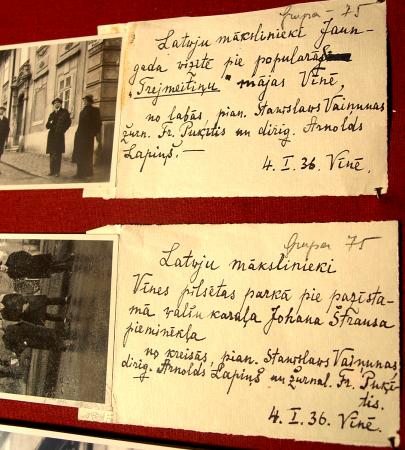 Grupa - 75
Latvju mākslinieki Jaun-
gada vizītē pie populārās
"Trejmeitiņu" mājas Vīnē,
no labās, pian. Staņislavs Vaiņunas
žurn. Fr. Puķītis un diriģ. Arnolds
Lapiņš.—
4. I. 36. Vīnē.
Grupa 75
Latvju mākslinieki
Vīnes pilsētas parkā pie pazīsta-
mā valšu karaļa Johana Štrausa
pieminēkļa
no kreisās, pian. Staņislavs Vaiņunas,
diriģ. Arnolds Lapiņš un žurnal. Fr. Puķī-
tis.
4. I. 36. Vīnē.